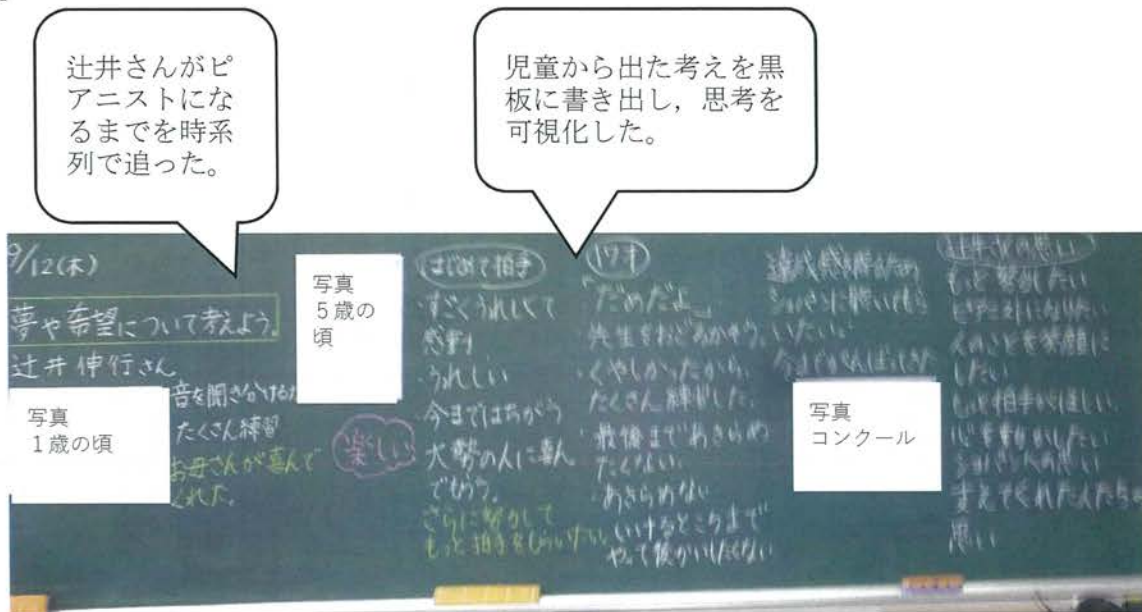 辻井さんがピ
アニストにな
るまでを時系
列で追った。
児童から出た考えを黒
板に書き出し，思考を
可視化した。
9/12(木)
夢や希望について考えよう。
辻井伸行さん
写真
１歳の頃
音を聞き分ける
たくさん練習
お母さんが喜んで
くれた。
写真
５歳の
頃
楽しい
はじめて拍手
・すごくうれしくて
感動
・うれしい
・今まではちがう
大勢の人に喜ん
でもらう。
さらに努力して
もっと拍手をもらいたい。
17才
「だめだよ」
先生をおどろかそう
・くやしかったから、
たくさん練習した。
・最後まであきらめ
たくない。
・あきらめない
いけるところまで
やって後かいしたくない
いたい。
写真
コンクール
もっと努力したい
ピアニストになりたい
人のことを笑顔に
したい
もっと拍手がほしい。
ショパンへの思い
支えてくれた人たちへの
思い